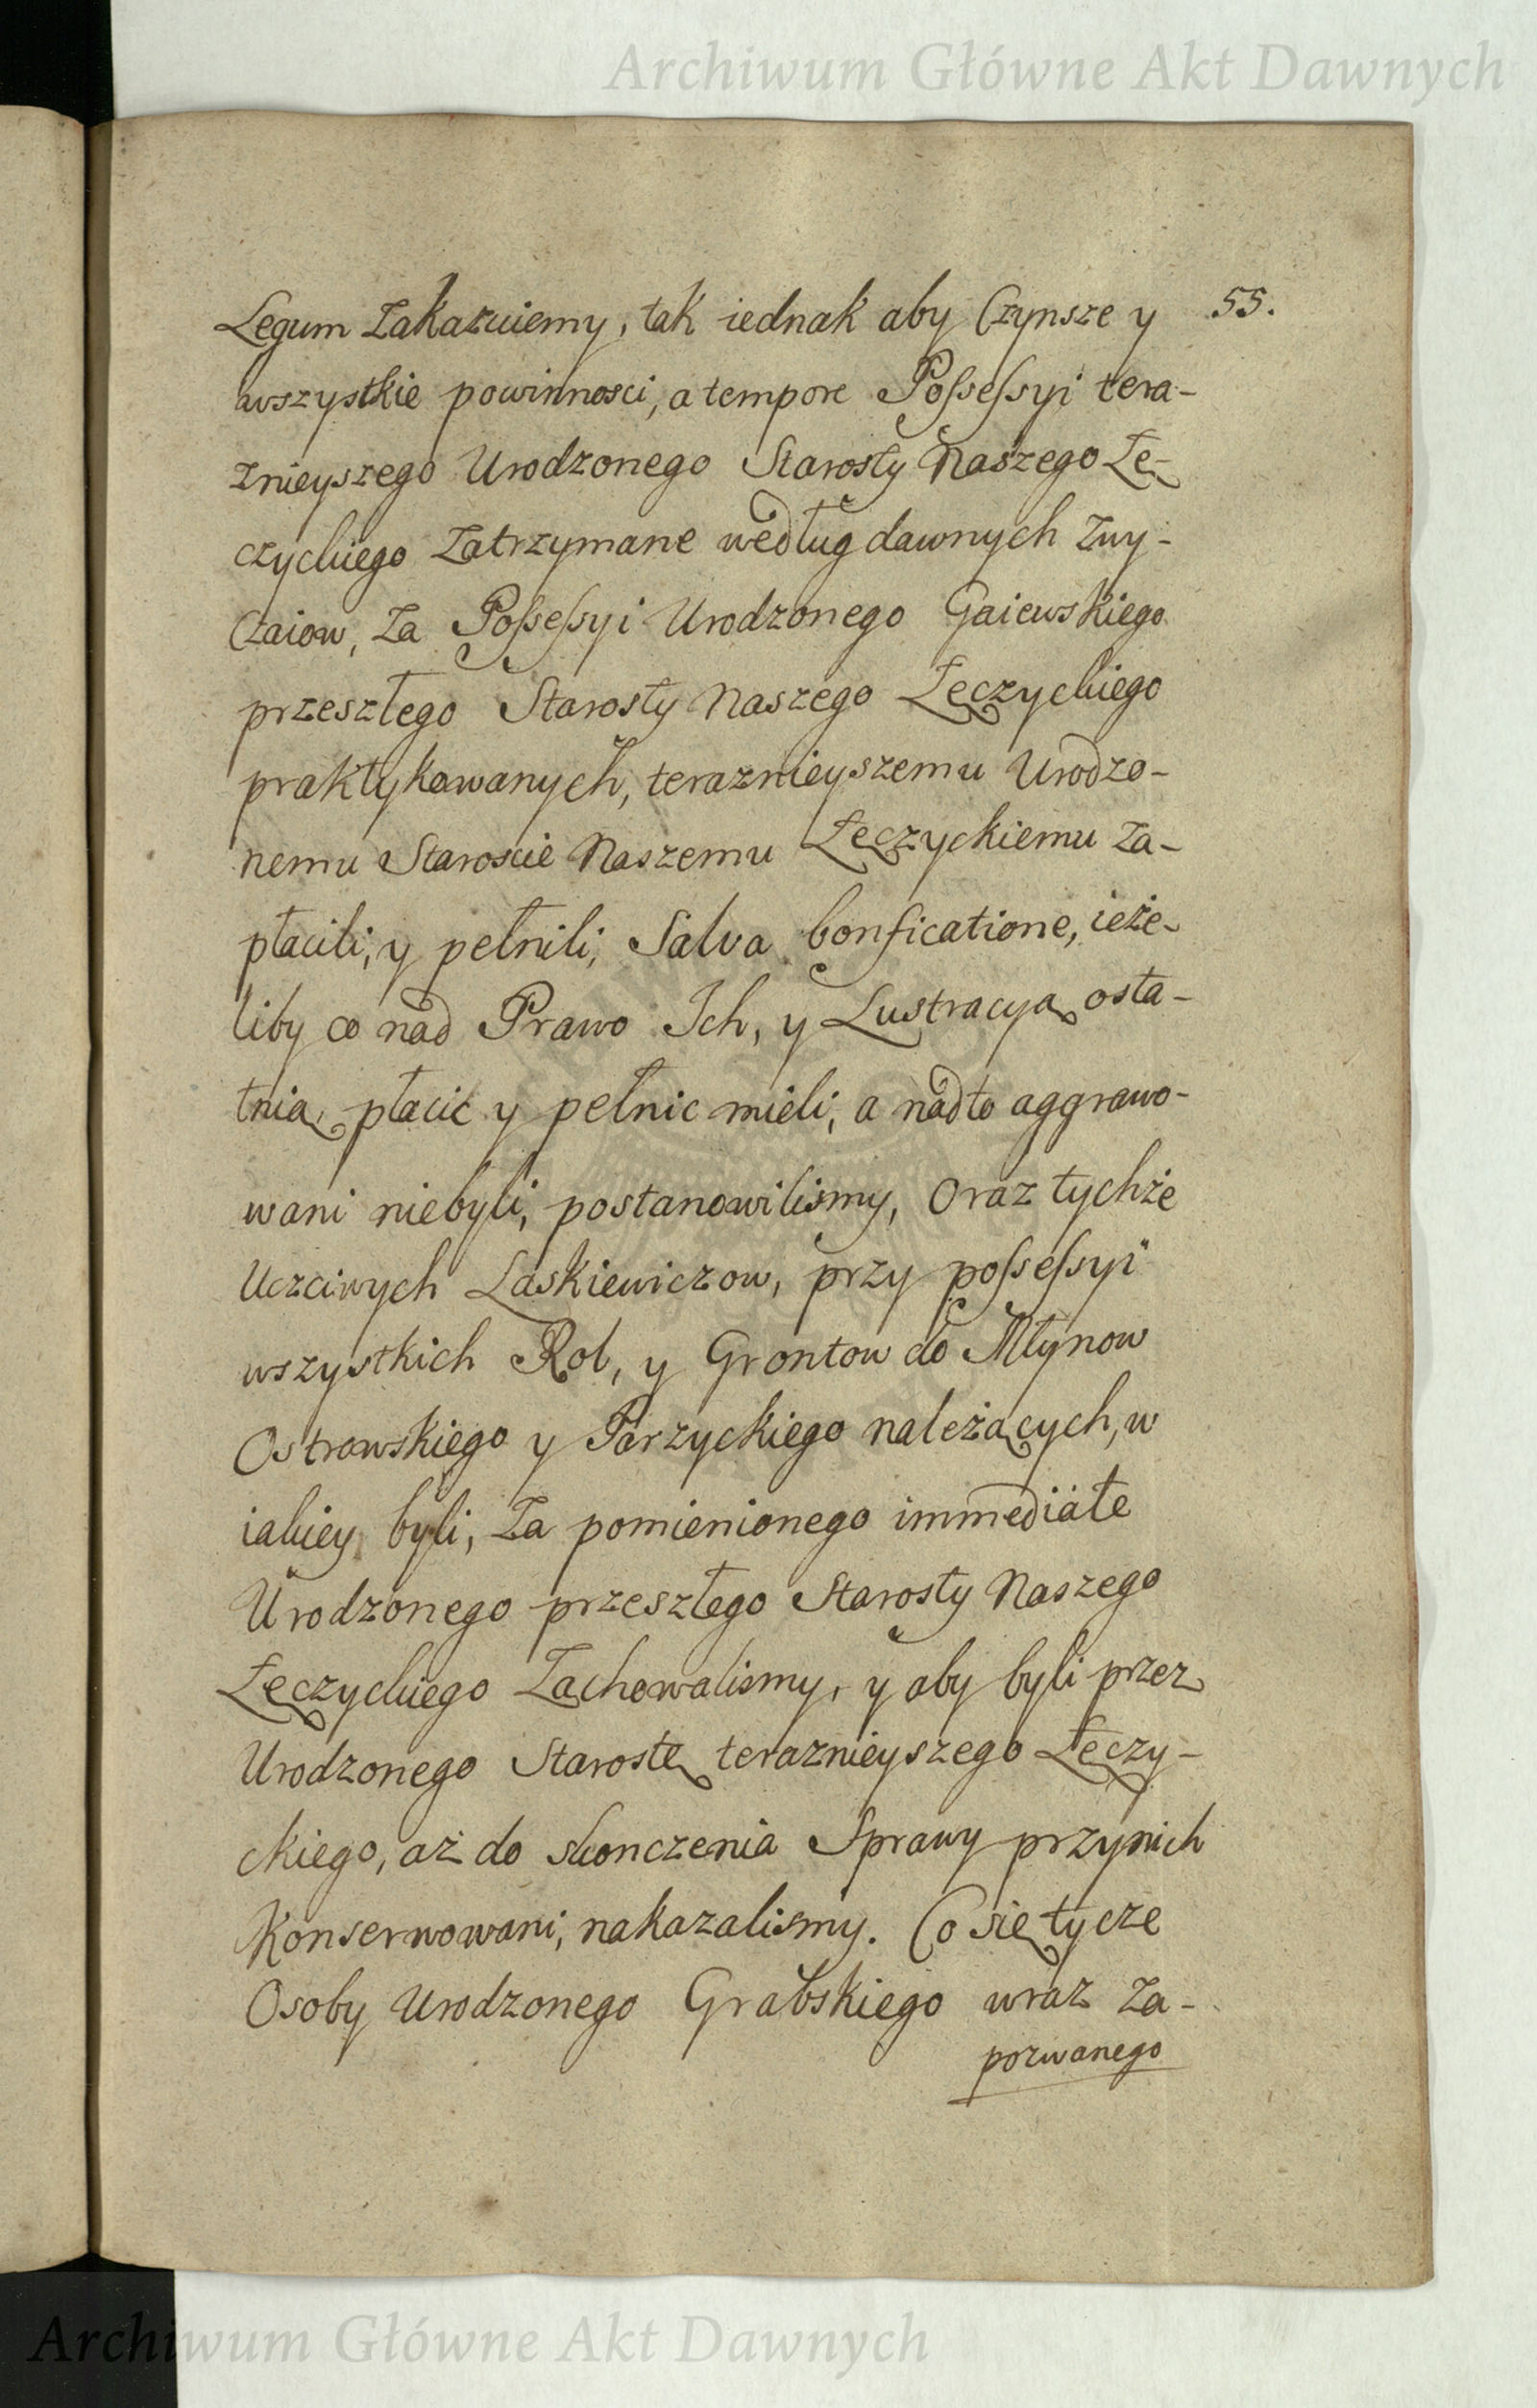 Archiwum Główne Akt Dawnych
55.
Legum Zakazuiemy, tak iednak aby Czynsze y
wszystkie powinnosci, a tempore Poſseſsyi tera-
znieyszego Urodzonego Starosty Naszego Łę-
czyckiego Zatrzymane według dawnych Zwy-
Czaiow, Za Poſseſsyi Urodzonego Gaiewskiego
przeszłego Starosty Naszego Łęczyckiego
praktykowanych, teraznieyszemu Urodzo-
nemu Staroscie Naszemu Łęczyckiemu Za-
płacili, y pełnili, Salva bonficatione, ieże-
liby co nad Prawo Ich, y Lustracyą osta-
tnią, płacić y pełnic mieli, a nadto aggrawo-
wani niebyli, postanowilismy, Oraz tychże
Uczciwych Laskiewiczow, przy poſseſsyi
wszystkich Rol, y Grontow do Młynow
Ostrowskiego y Parzyckiego należących, w
iakiey byli, Za pomienionego immediate
Urodzonego przeszłego Starosty Naszego
Łęczyckiego Zachowalismy, y aby byli przez
Urodzonego Starostę teraznieyszego Łęczy-
ckiego, aż do skonczenia Sprawy przynich
Konserwowani, nakazalismy. Co się tycze
Osoby Urodzonego Grabskiego wraz Za-
pozwanego
Archiwum Główne Akt Dawnych